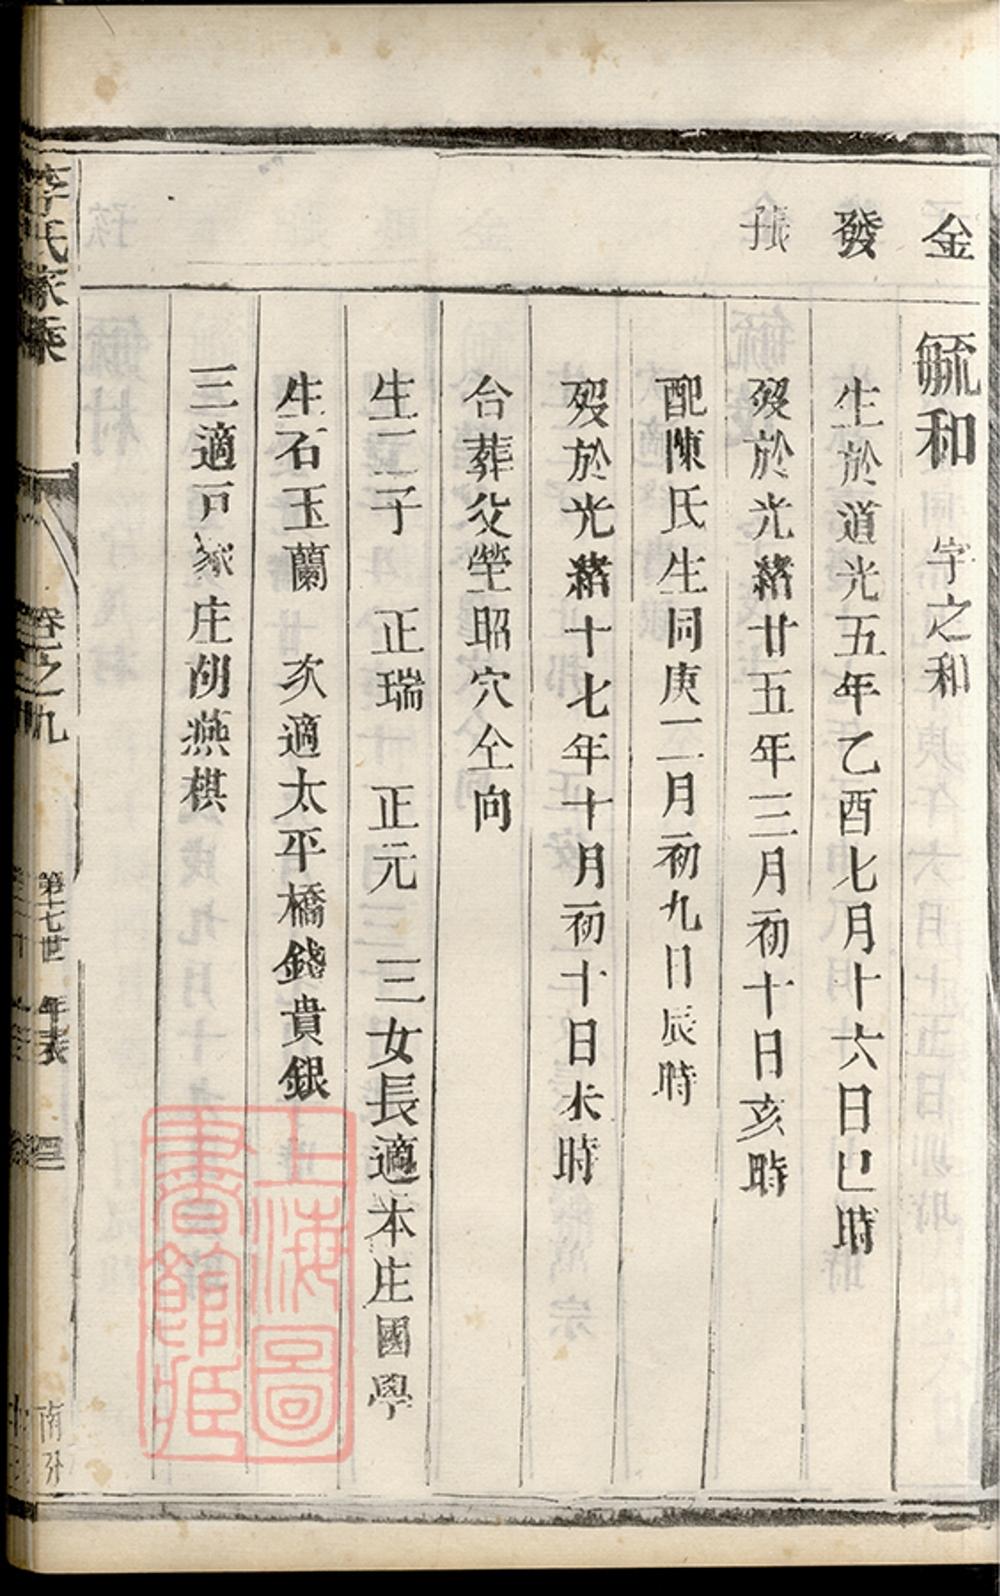 金
發
孫
毓和　字之和
生於道光五年乙酉七月十六日巳時
歿於光緒廿五年三月初十日亥時
配陳氏生同庚二月初九日辰時
歿於光緒十七年十月初十日未時
台葬父塋昭穴仝向
生二子　正瑞　正元　三女長適本庄國學
生石玉蘭　次適太平橋錢貴銀
三適戸家庄胡燕棋
李氏家乘
卷之九
第十七世　年表
南分
上海圖
書館藏